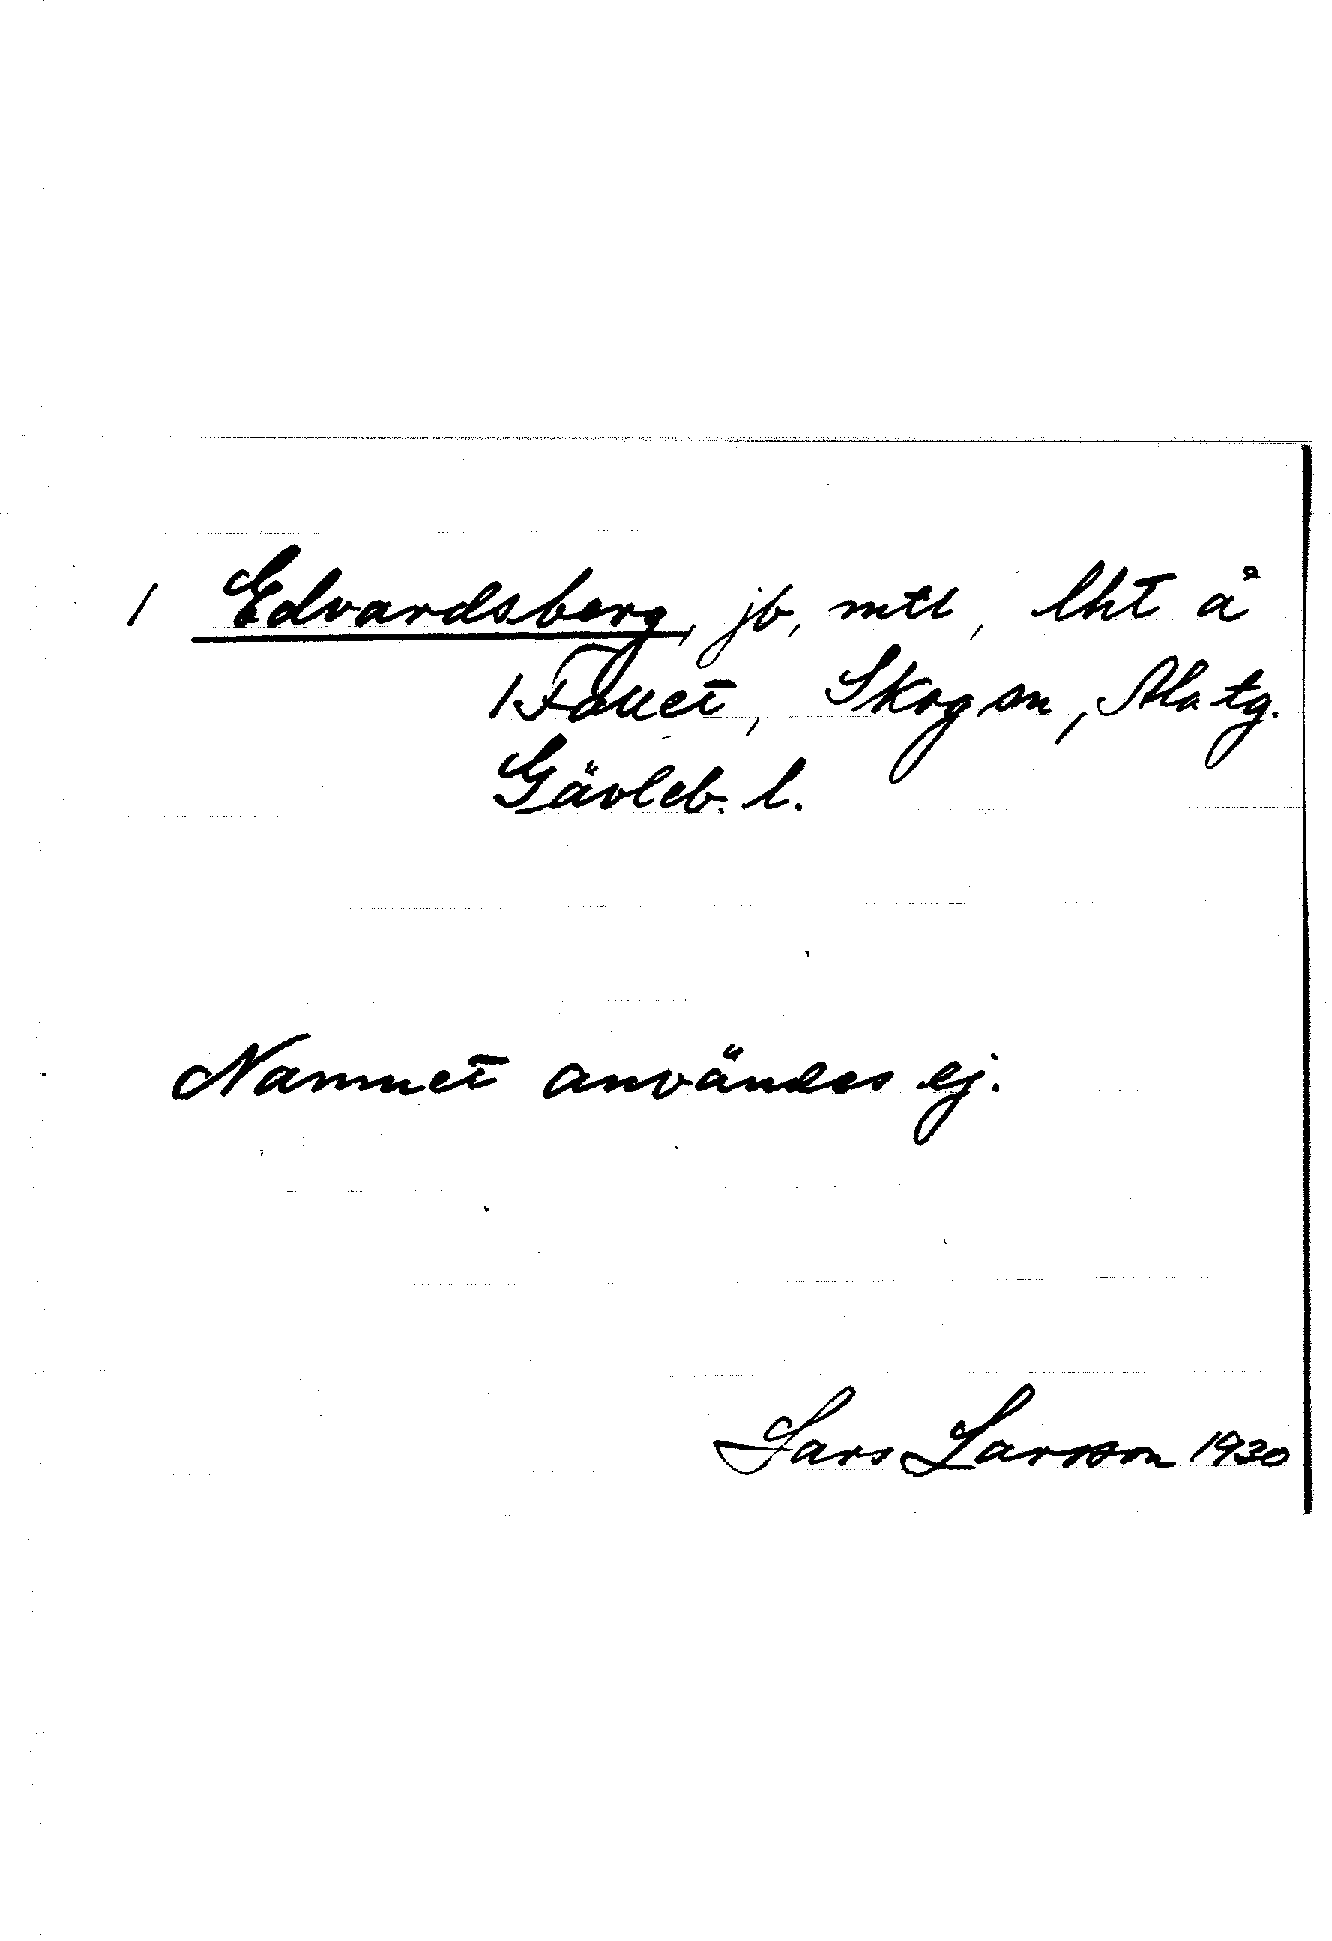 / Edvardsberg, jb, mtl, lht å
/ Fallet, Skog sn, Ala tg.
Gävleb. l.
Namnet användes ej.
Lars Larsson 1930